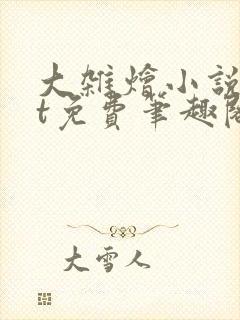 大雑燴小說
t免費筆趣閣
大雪人